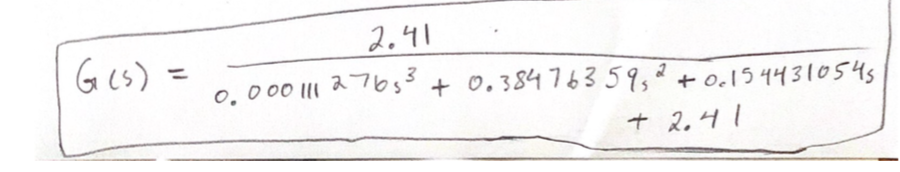 G(s) = 2.41
0.000111276s³ + 0.38476359s² + 0.154431054s
+ 2.41